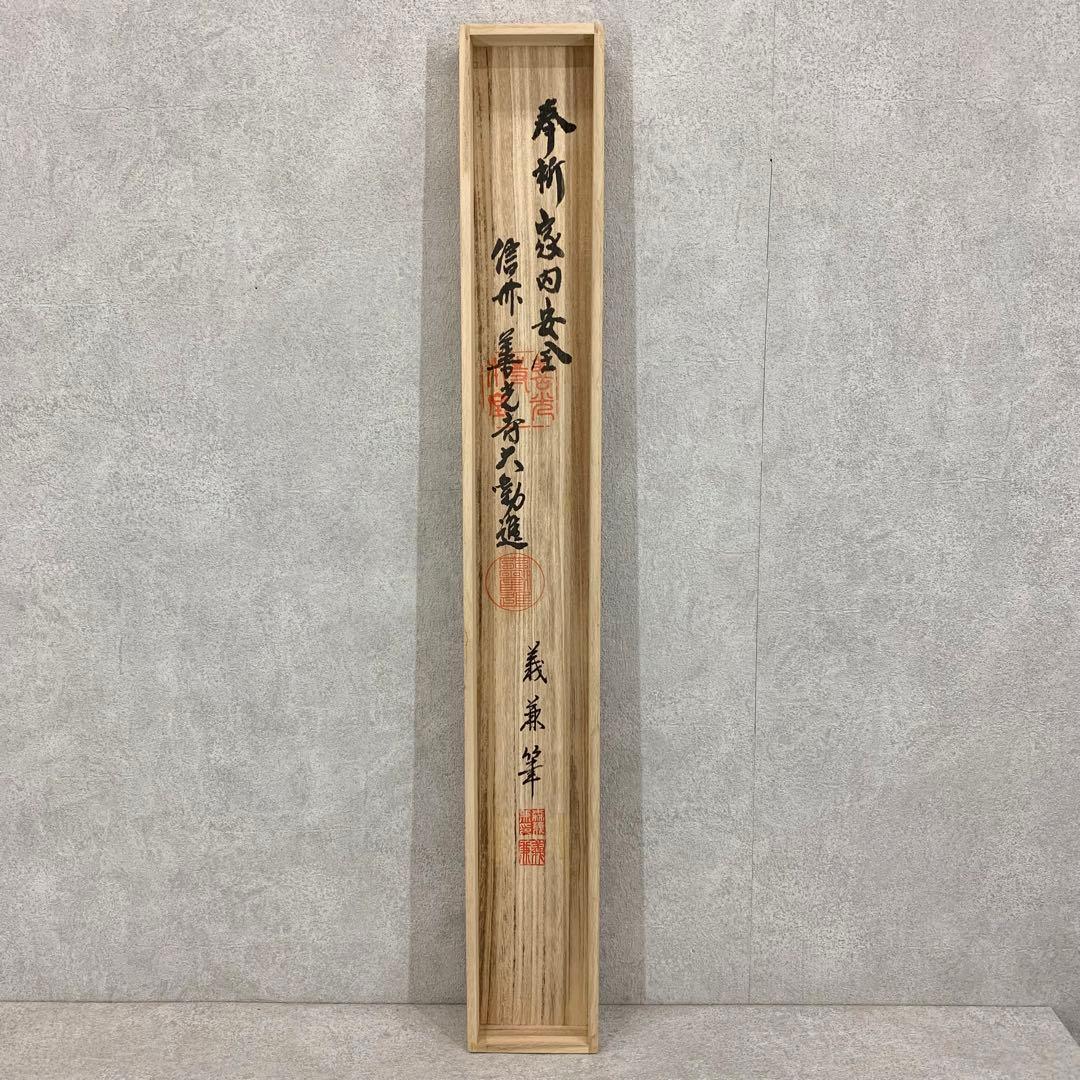 奉祈家内安全
信州善光寺大勧進
義兼筆